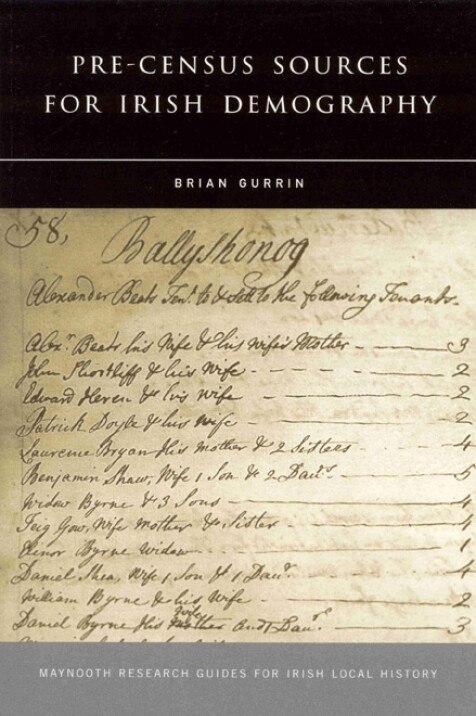 PRE-CENSUS SOURCES
FOR IRISH DEMOGRAPHY
BRIAN GURRIN
58,
Ballyshonog
Alexander Beats Tent. to & Sett to the following Tenants.
Alexr. Beats his Wife & his Wife's Mother 3
John Shortliff & his Wife 2
Edward Heren & his Wife 2
Patrick Doyle & his Wife 2
Laurence Bryan His Mother & 2 Sisters 4
Benjamin Shaw, Wife 1 Son & 2 Daurs. 5
Widow Byrne & 3 Sons 4
Teig Gow, Wife Mother & Sister 4
Elenor Byrne Widow 1
Daniel Shea, Wife 1 Son & 1 Daur. 4
William Byrne & his Wife 2
Daniel Byrne His Wife and 1 Daur. 3
MAYNOOTH RESEARCH GUIDES FOR IRISH LOCAL HISTORY